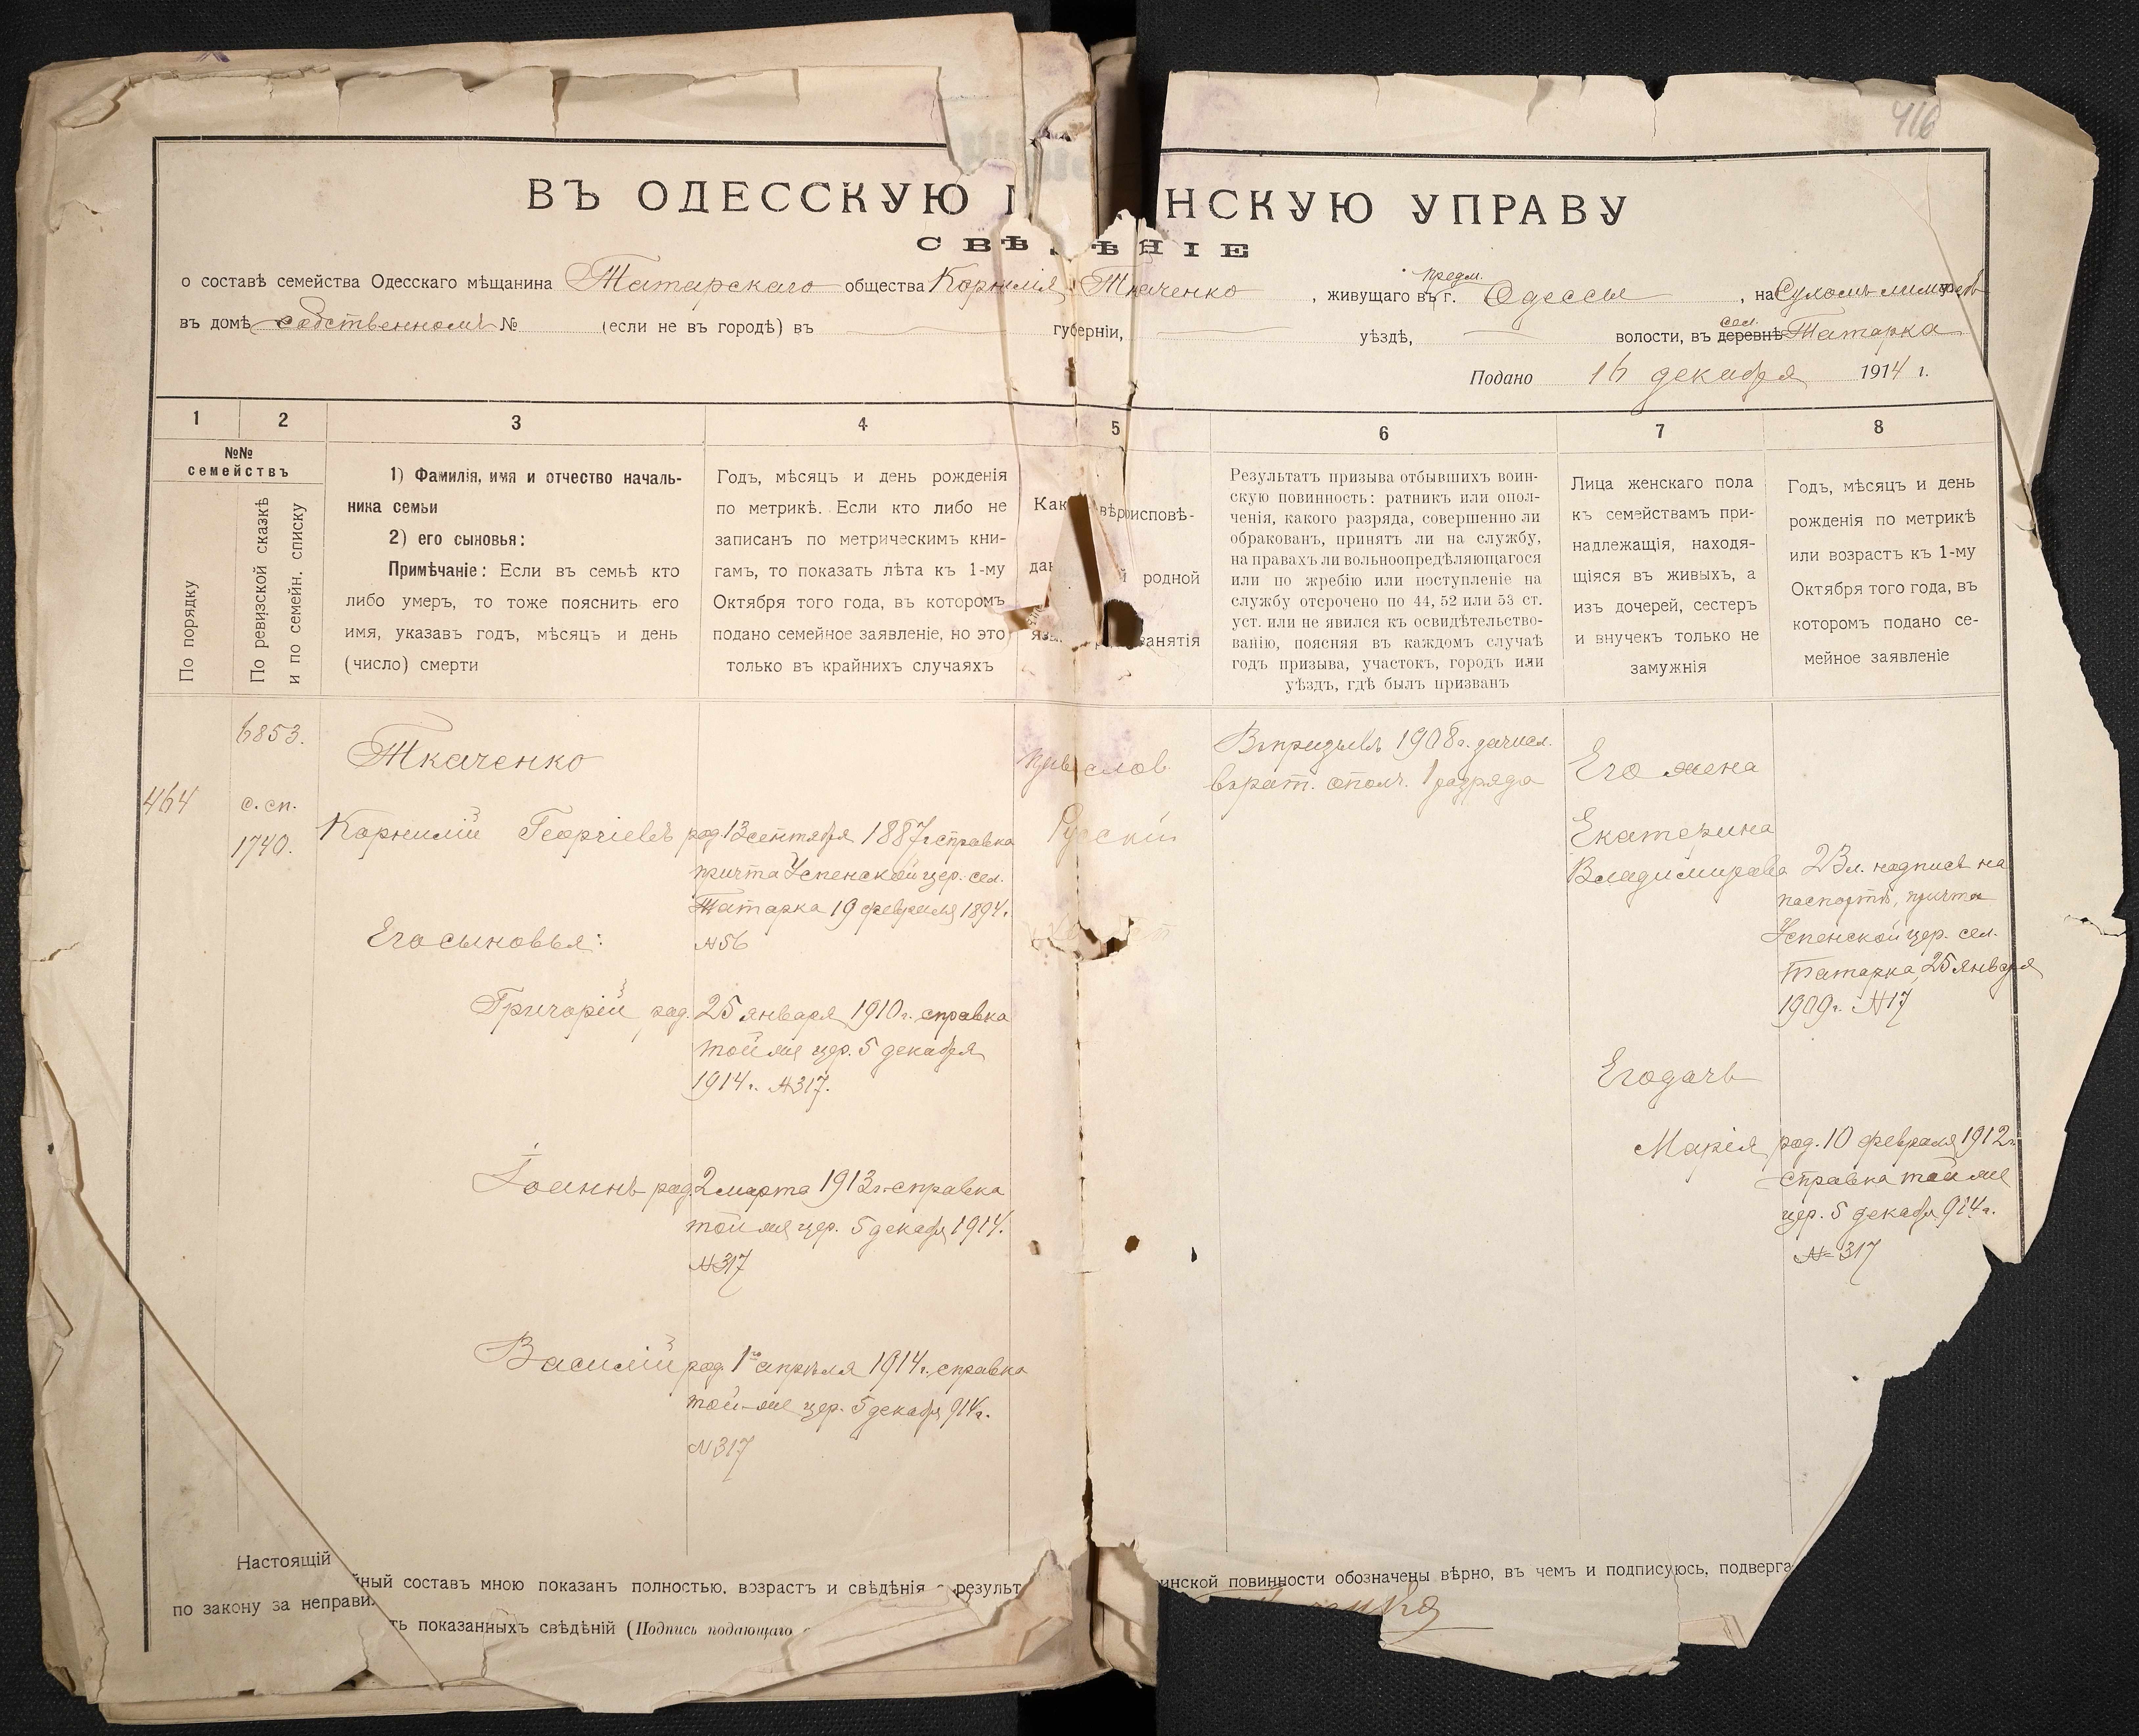 416
ВЪ ОДЕССКУЮ НСКУЮ УПРАВУ
СВѢ ѢНІЕ
о составѣ семейства Одесскаго мѣщанина Татарскаго общества Корнилія Ткаченко, живущаго въ предм. г. Одессы, на Сухомъ лиманѣ
въ домѣ собственномъ № (если не въ городѣ) въ губерніи, уѣздѣ, волости, въ деревнѣ сел. Татарка
Подано 16 декабря 1914 г.
1 2 3 4 5 6 7 8
№№
семействъ
По порядку
По ревизской сказкѣ
и по семейн. списку
1) Фамилія, имя и отчество началь-
ника семьи
2) его сыновья:
Примѣчаніе: Если въ семьѣ кто
либо умеръ, то тоже пояснить его
имя, указавъ годъ, мѣсяцъ и день
(число) смерти
Годъ, мѣсяцъ и день рожденія
по метрикѣ. Если кто либо не
записанъ по метрическимъ кни-
гамъ, то показать лѣта къ 1-му
Октября того года, въ которомъ
подано семейное заявленіе, но это
только въ крайнихъ случаяхъ
Как вѣроисповѣ-
дан й родной
язы занятія
Результатъ призыва отбывшихъ воин-
скую повинность: ратникъ или опол-
ченія, какого разряда, совершенно ли
обракованъ, принятъ ли на службу,
на правахъ ли вольноопредѣляющагося
или по жребію или поступленіе на
службу отсрочено по 44, 52 или 53 ст.
уст. или не явился къ освидѣтельство-
ванію, поясняя въ каждомъ случаѣ
годъ призыва, участокъ, городъ или
уѣздъ, гдѣ былъ призванъ
Лица женскаго пола
къ семействамъ при-
надлежащія, находя-
щіяся въ живыхъ, а
изъ дочерей, сестеръ
и внучекъ только не
замужнія
Годъ, мѣсяцъ и день
рожденія по метрикѣ
или возрастъ къ 1-му
Октября того года, въ
которомъ подано се-
мейное заявленіе
464
6853.
с. сп.
1740.
Ткаченко
Корнилій Георгіевъ
род. 13 сентября 1887 г. справка
причта Успенской цер. сел.
Татарка 19 февраля 1894 г.
№ 56
Правслов
Русскій
Въ призывъ 1908 г. зачисл.
въ рат. ополч. 1 разряда
Его жена
Екатерина
Владимирова
23 л. надпись на
паспортѣ, причта
Успенской цер. сел.
Татарка, 25 января
1909 г. № 17
Его сыновья:
Григорій род. 25 января 1910 г. справка
той же цер. 5 декабря
1914 г. № 317.
Его дочь
Марія род. 10 февраля 1912 г.
справка той же
цер. 5 декабр. 914 г.
№ 317
Іоаннъ род. 2 марта 1913 г. справка
той же цер. 5 декабр. 1914.
№ 317
Василій род. 1го апрѣля 1914 г. справка
той-же цер. 5 декабр. 914 г.
№ 317
Настоящій йный составъ мною показанъ полностью, возрастъ и свѣдѣнія результ инской повинности обозначены вѣрно, въ чемъ и подписуюсь, подверга
по закону за неправи ть показанныхъ свѣдѣній (Подпись подающаго